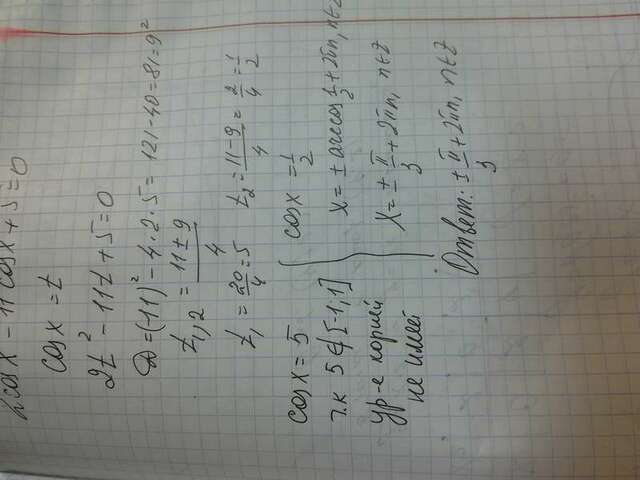 2cosx - 11cosx + 5 = 0
cosx = t
2t² - 11t + 5 = 0
D = (-11)² - 4·2·5 = 121 - 40 = 81 = 9²
t₁,₂ = (11 ± 9)/4
t₁ = 20/4 = 5 t₂ = (11-9)/4 = 2/4 = 1/2
cosx = 5
т.к 5 ∉ [-1;1]
ур-е корней
не имеет
cosx = 1/2
x = ± arccos 1/2 + 2πn, n∈Z
x = ± π/3 + 2πn, n∈Z
Ответ: ± π/3 + 2πn, n∈Z